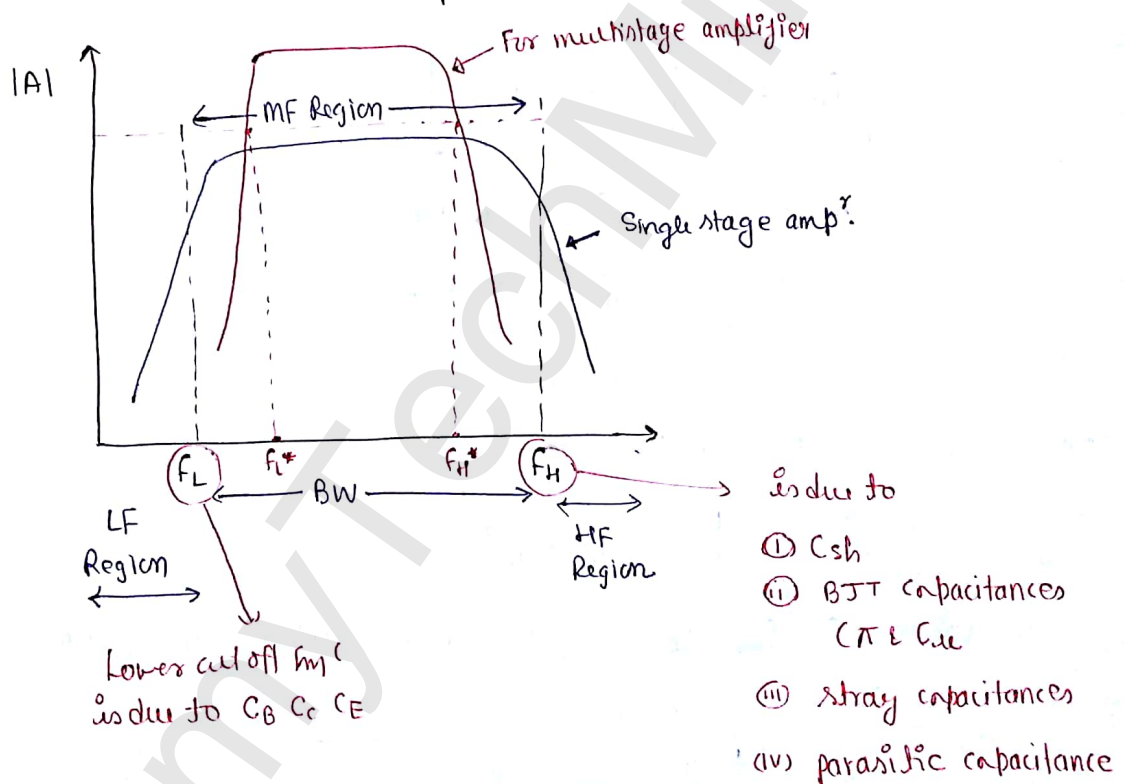 For multistage amplifier
|A|
MF Region
Single stage ampr.
FL
fL*
FH*
FH
BW
LF
Region
HF
Region
Lower cut off
is due to CB CC CE
is due to
(I) Csh
(II) BJT capacitances
Cπ & Cμ
(III) stray capacitances
(IV) parasitic capacitance
myTechMi